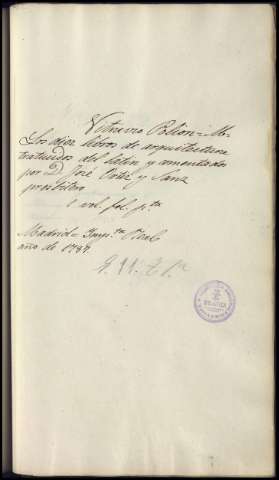 Vitruvio Polion = M.
Los diez libros de arquitectura
traducidos del latin y comentados
por D. José Ortiz y Sanz
presbitero
1 vol. fol. pta
Madrid = Imp.ta Real
año de 1787.